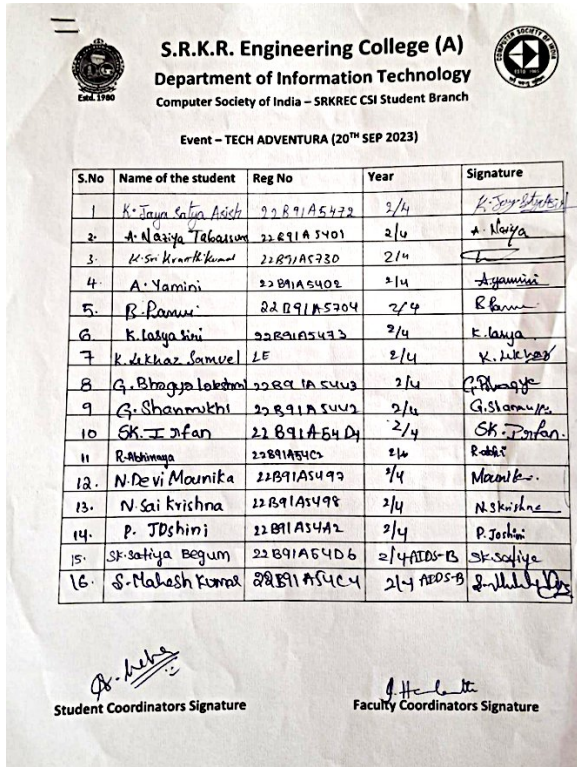 S.R.K.R. Engineering College (A)
Department of Information Technology
Computer Society of India – SRKREC CSI Student Branch
Estd. 1980
COMPUTER SOCIETY OF INDIA
Event – TECH ADVENTURA (20TH SEP 2023)
S.No Name of the student Reg No Year Signature
1 K. Jaya Satya Asish 22B91A5472 2/4
2. A. Naziya Tabassum 22B91A5401 2/4 A. Naziya
3. K. Sri Kranthi Kumar 22B91A5730 2/4
4. A. Yamini 22B91A5402 2/4 A.yamini
5. B. 22B91A5704 2/4 B
6. K. Lasya Sini 22B91A5473 2/4 K. Lasya
7 K. Likhaz Samvel LE 2/4 K. Likhaz
8 G. Bhagya Lakshmi 22B91A5443 2/4 G. Bhagya
9 G. Shanmukhi 22B91A5442 2/4
10 SK. Irfan 22B91A54D4 2/4 SK. Irfan.
11 R. Abhinaya 22B91A54C2 2/4 R. abhi
12. N. Devi Mounika 22B91A5497 2/4
13. N. Sai Krishna 22B91A5498 2/4 N.Skrishna
14. P. JOshini 22B91A54A2 2/4 P. Joshini
15. SK. Safiya Begum 22B91A54D6 2/4 AIDS-B SK Safiya
16. S. Mahesh Kumar 22B91A54C4 2/4 AIDS-B
Student Coordinators Signature Faculty Coordinators Signature